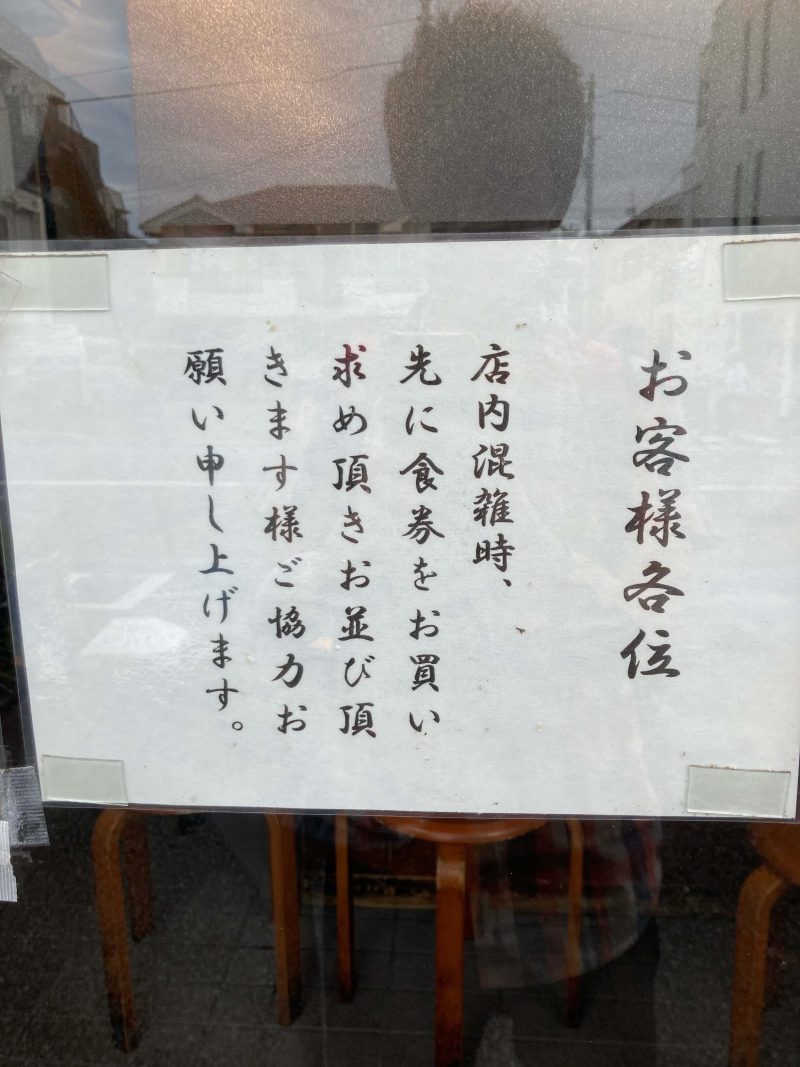 お客様各位
店内混雑時、
先に食券をお買い
求め頂きお並び頂
きます様ご協力お
願い申し上げます。